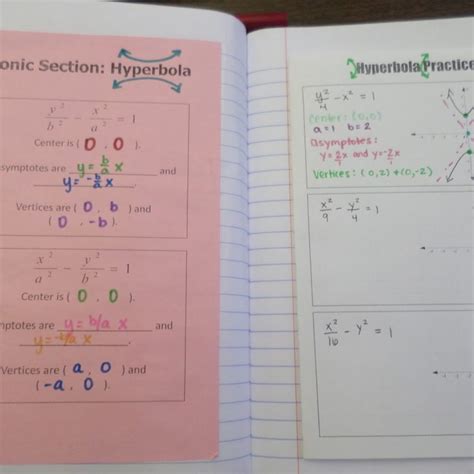 onic Section: Hyperbola
y² / b² - x² / a² = 1
Center is ( 0 , 0 ).
symptotes are y = b/a x and
y = -b/a x .
Vertices are ( 0 , b ) and
( 0 , -b ).
x² / a² - y² / b² = 1
Center is ( 0 , 0 ).
mptotes are y = b/a x and
y = -b/a x .
Vertices are ( a , 0 ) and
( -a , 0 ).
Hyperbola Practice
y²/4 - x² = 1
Center: (0,0)
a=1 b=2
asymptotes:
and
Vertices: (0,2) + (0,-2)
x²/9 - y²/4 = 1
x²/16 - y² = 1